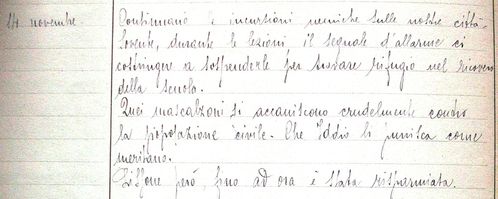 14 novembre
Continuano le incursioni nemiche sulle nostre città.
Sovente, durante le lezioni, il segnale d'allarme ci
costringe a sospenderle per trovare rifugio nel ricovero
della scuola.
Quei mascalzoni si accaniscono crudelmente contro
la popolazione civile. Che Iddio li punisca come
meritano.
però, fino ad ora è stata risparmiata.